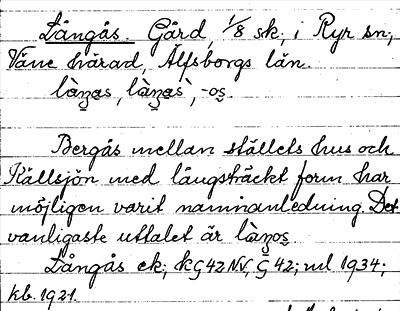 Långås. Gård, 1/8 sk; i Ryr sn;
Väne härad, Älfsborgs län.
làŋas, làŋas`, -os.
Bergås mellan ställets hus och
Källsjön med långsträckt form har
möjligen varit namnanledning. Det
vanligaste uttalet är làŋos.
Långås ek; kG42NV, G42; ml 1934;
kb. 1921.